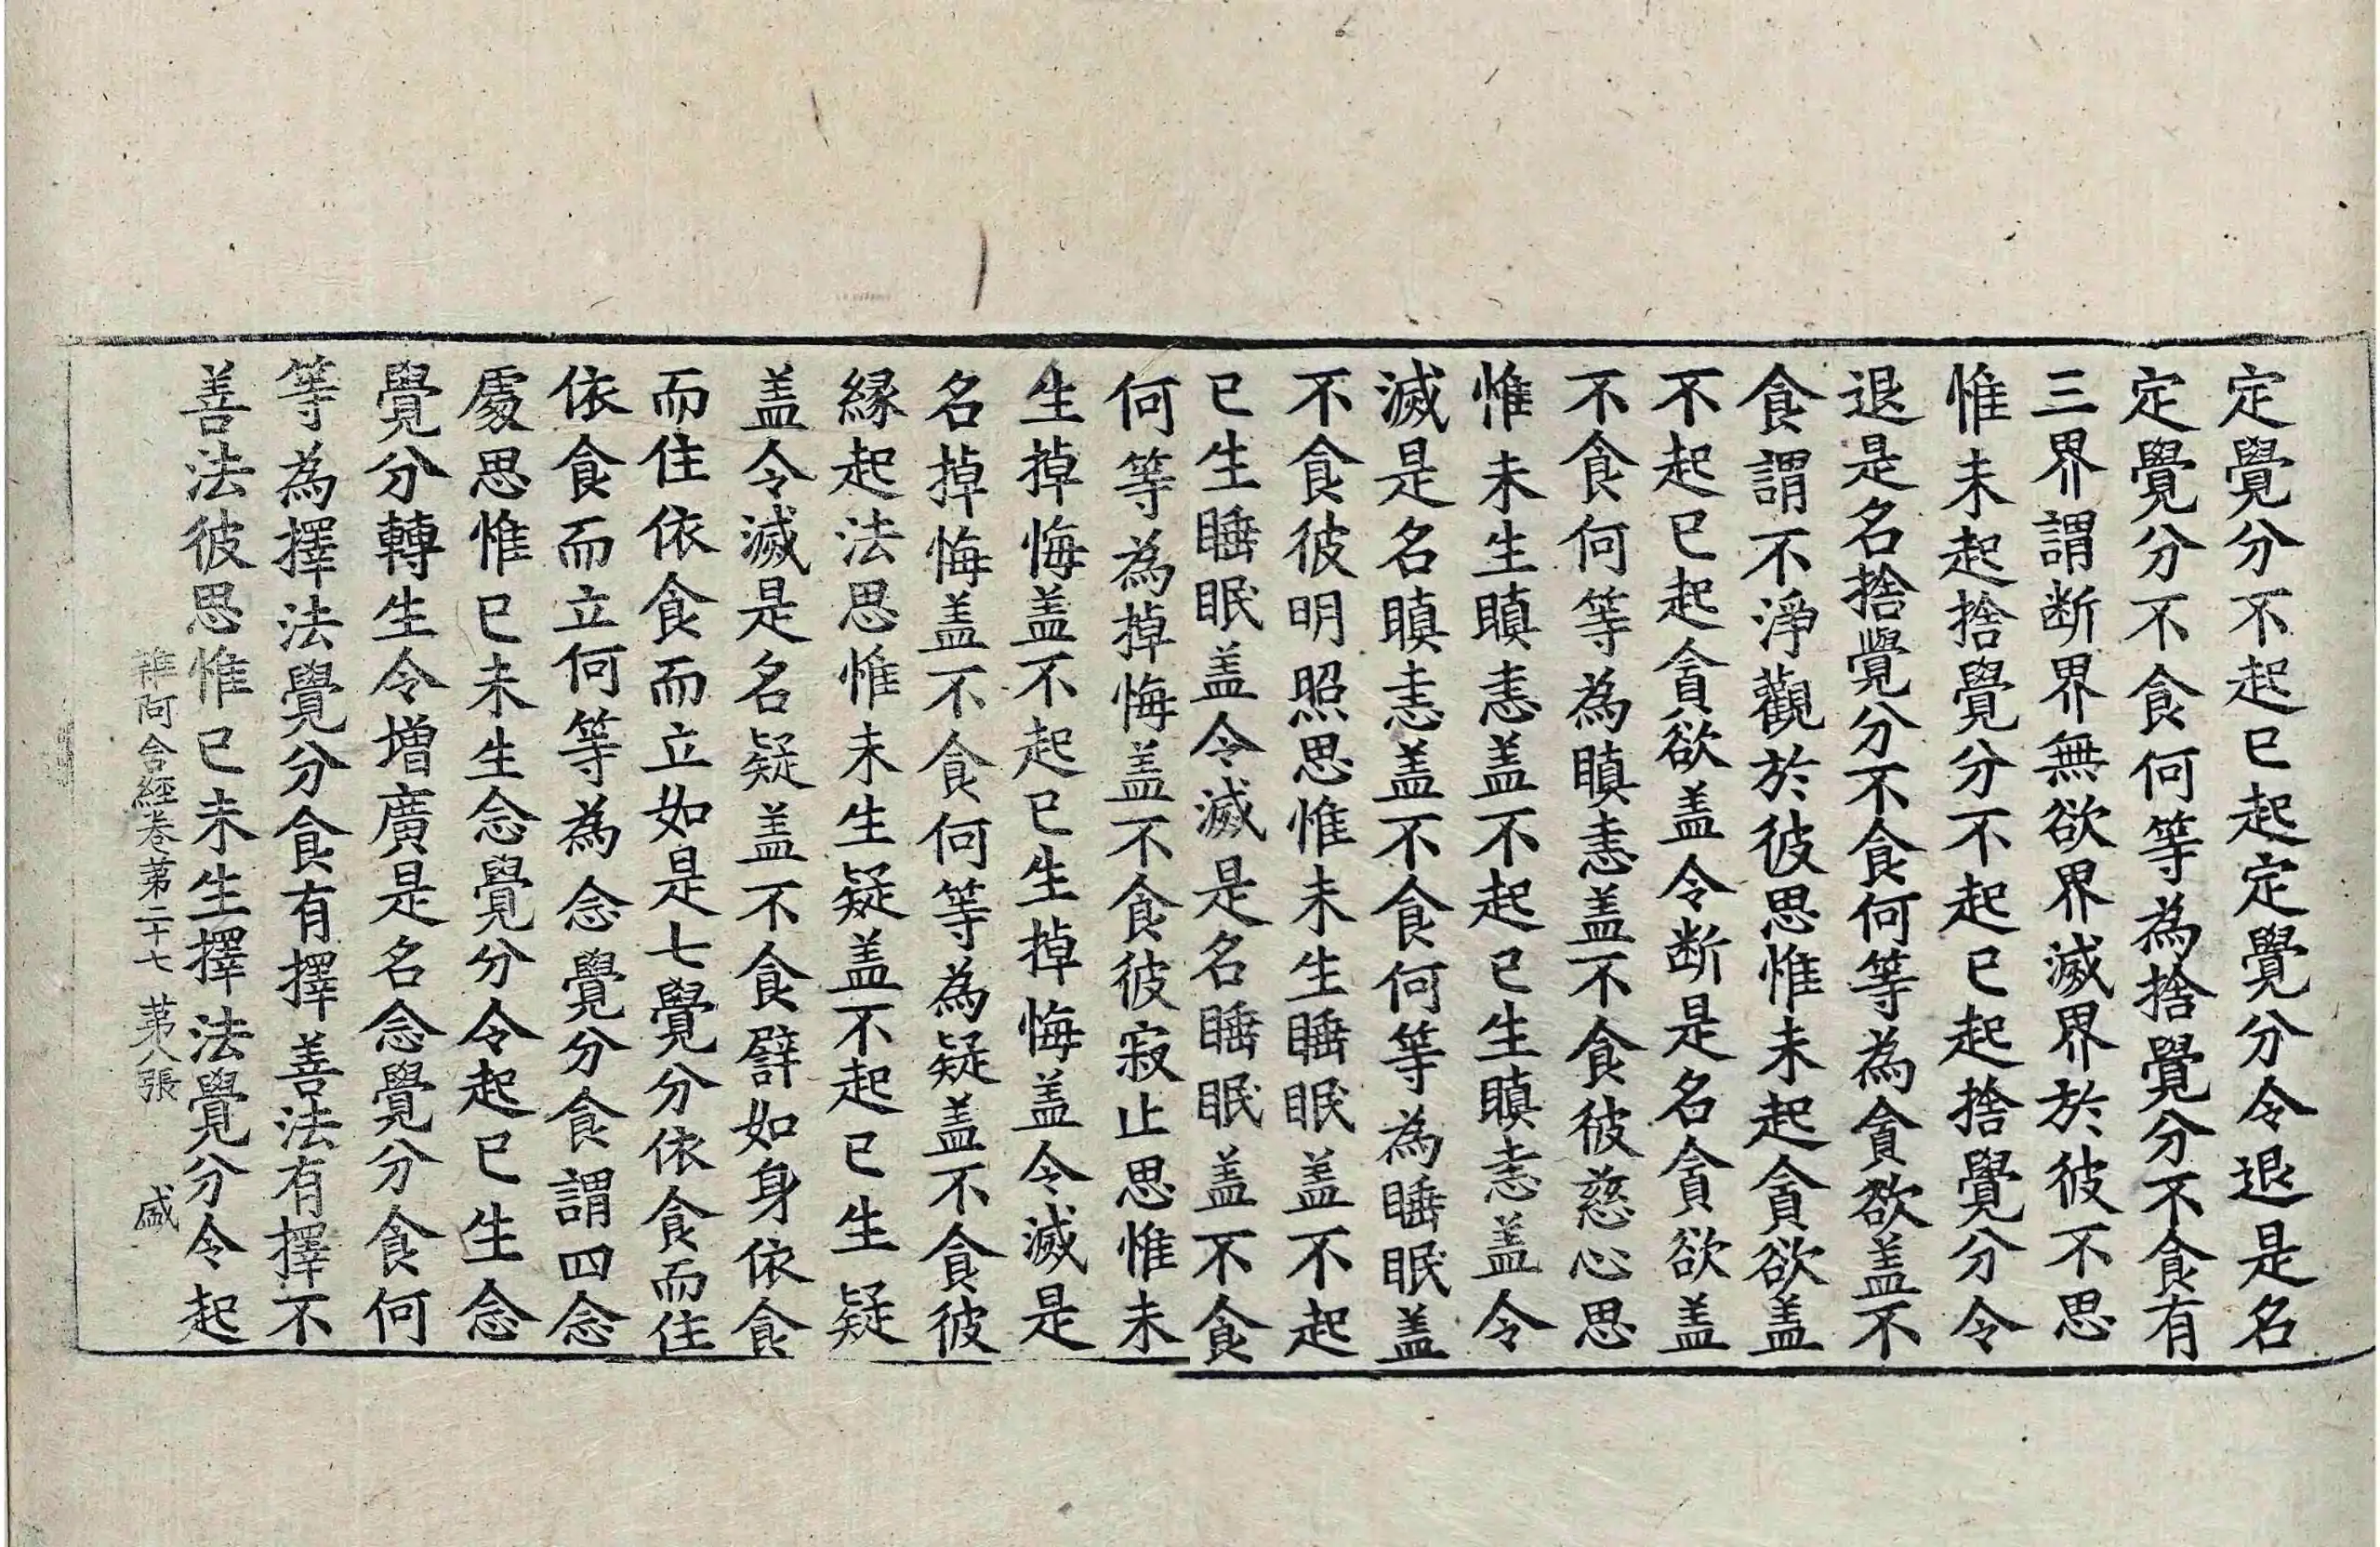 定覺分不起已起定覺分令退是名
定覺分不食何等為捨覺分不食有
三界謂断界無欲界滅界於彼不思
惟未起捨覺分不起已起捨覺分令
退是名捨覺分不食何等為貪欲盖不
食謂不淨觀於彼思惟未起貪欲盖
不起已起貪欲盖令断是名貪欲盖
不食何等為瞋恚盖不食彼慈心思
惟未生瞋恚盖不起已生瞋恚盖令
滅是名瞋恚盖不食何等為睡眠盖
不食彼明照思惟未生睡眠盖不起
已生睡眠盖令滅是名睡眠盖不食
何等為掉悔盖不食彼寂止思惟未
生掉悔盖不起已生掉悔盖令滅是
名掉悔盖不食何等為疑盖不食彼
縁起法思惟未生疑盖不起已生疑
盖令滅是名疑盖不食譬如身依食
而住依食而立如是七覺分依食而住
依食而立何等為念覺分食謂四念
處思惟已未生念覺分令起已生念
覺分轉生令増廣是名念覺分食何
等為擇法覺分食有擇善法有擇不
善法彼思惟已未生擇法覺分令起
雜阿含經卷第二十七 第八張 盛